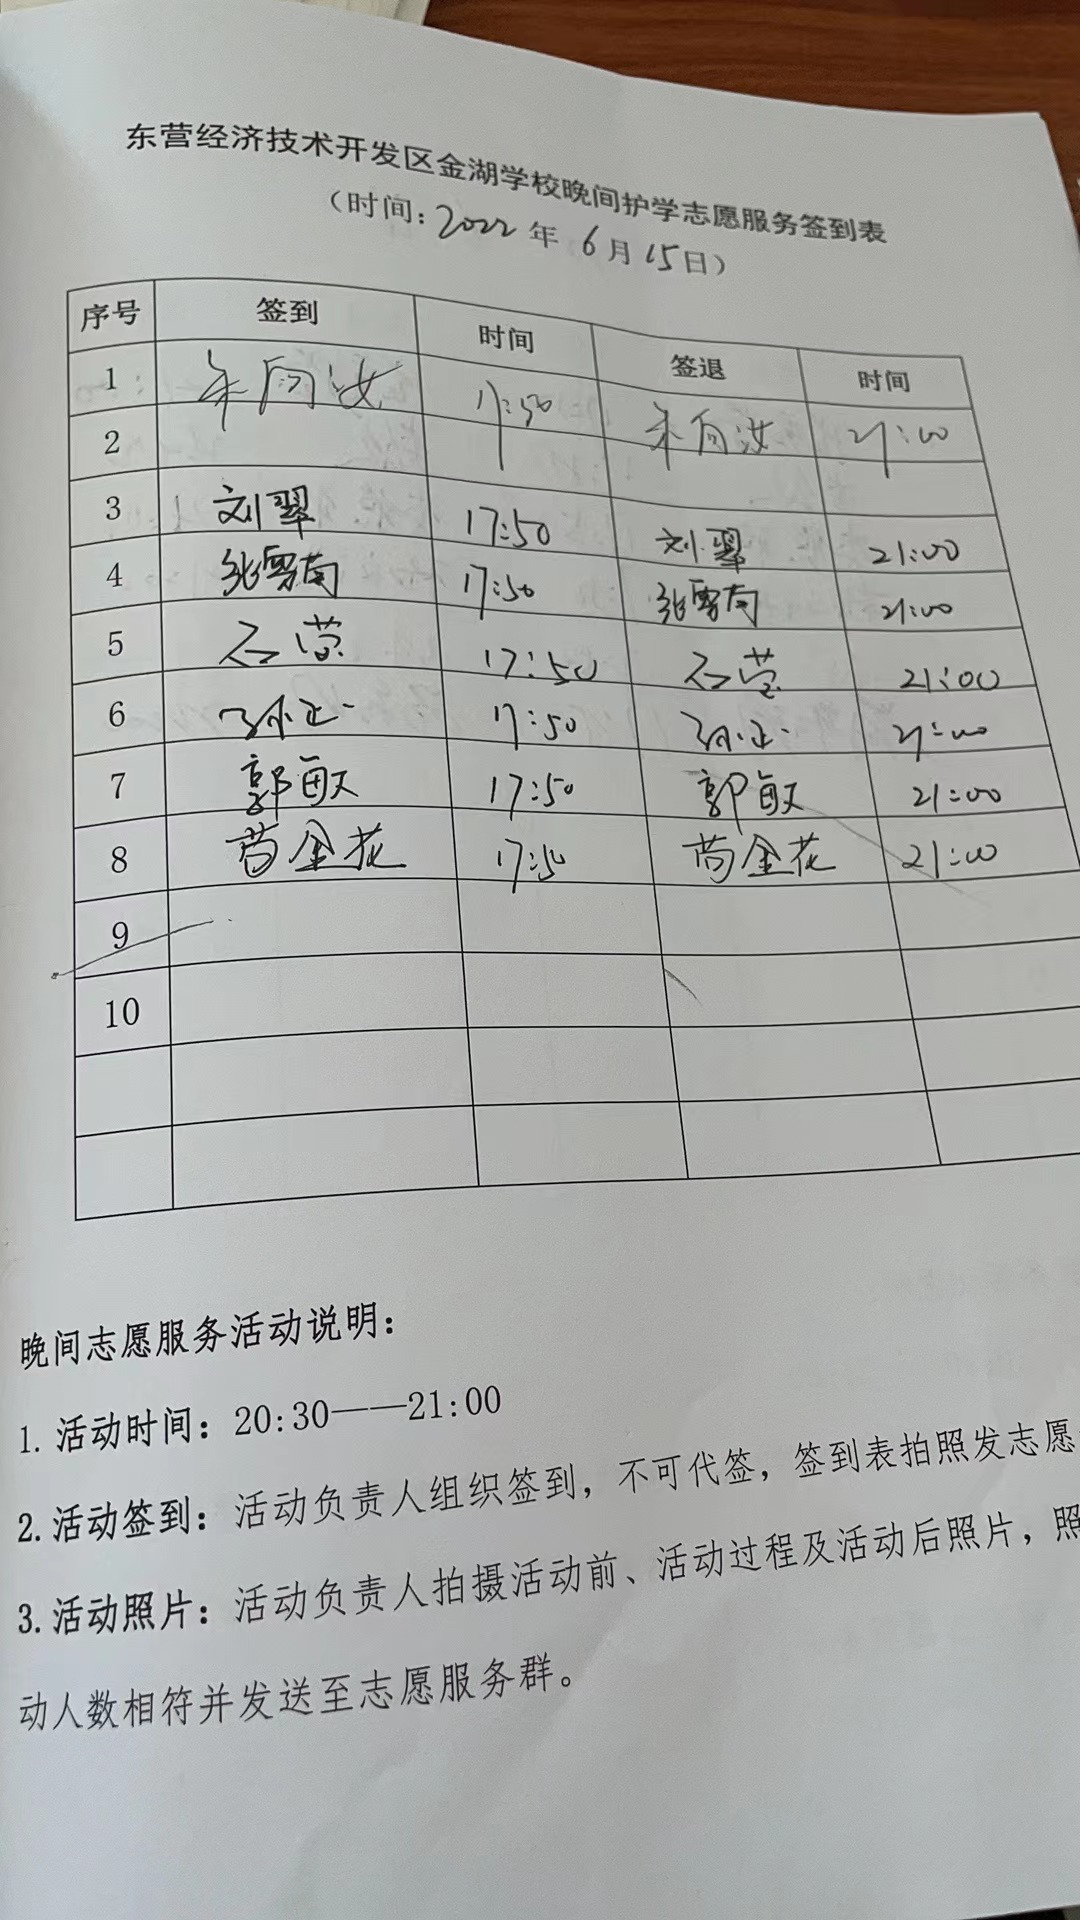 东营经济技术开发区金湖学校晚间护学志愿服务签到表
（时间：2022年6月15日）
序号 签到 时间 签退 时间
1 17:50 21:00
2
3 刘翠 17:50 刘翠 21:00
4 张雪南 17:50 张雪南 21:00
5 石莹 17:50 石莹 21:00
6 17:50 21:00
7 郭敏 17:50 郭敏 21:00
8 苘金花 17:50 苘金花 21:00
9
10
晚间志愿服务活动说明：
1.活动时间：20:30——21:00
2.活动签到：活动负责人组织签到，不可代签，签到表拍照发志愿
3.活动照片：活动负责人拍摄活动前、活动过程及活动后照片，照
动人数相符并发送至志愿服务群。